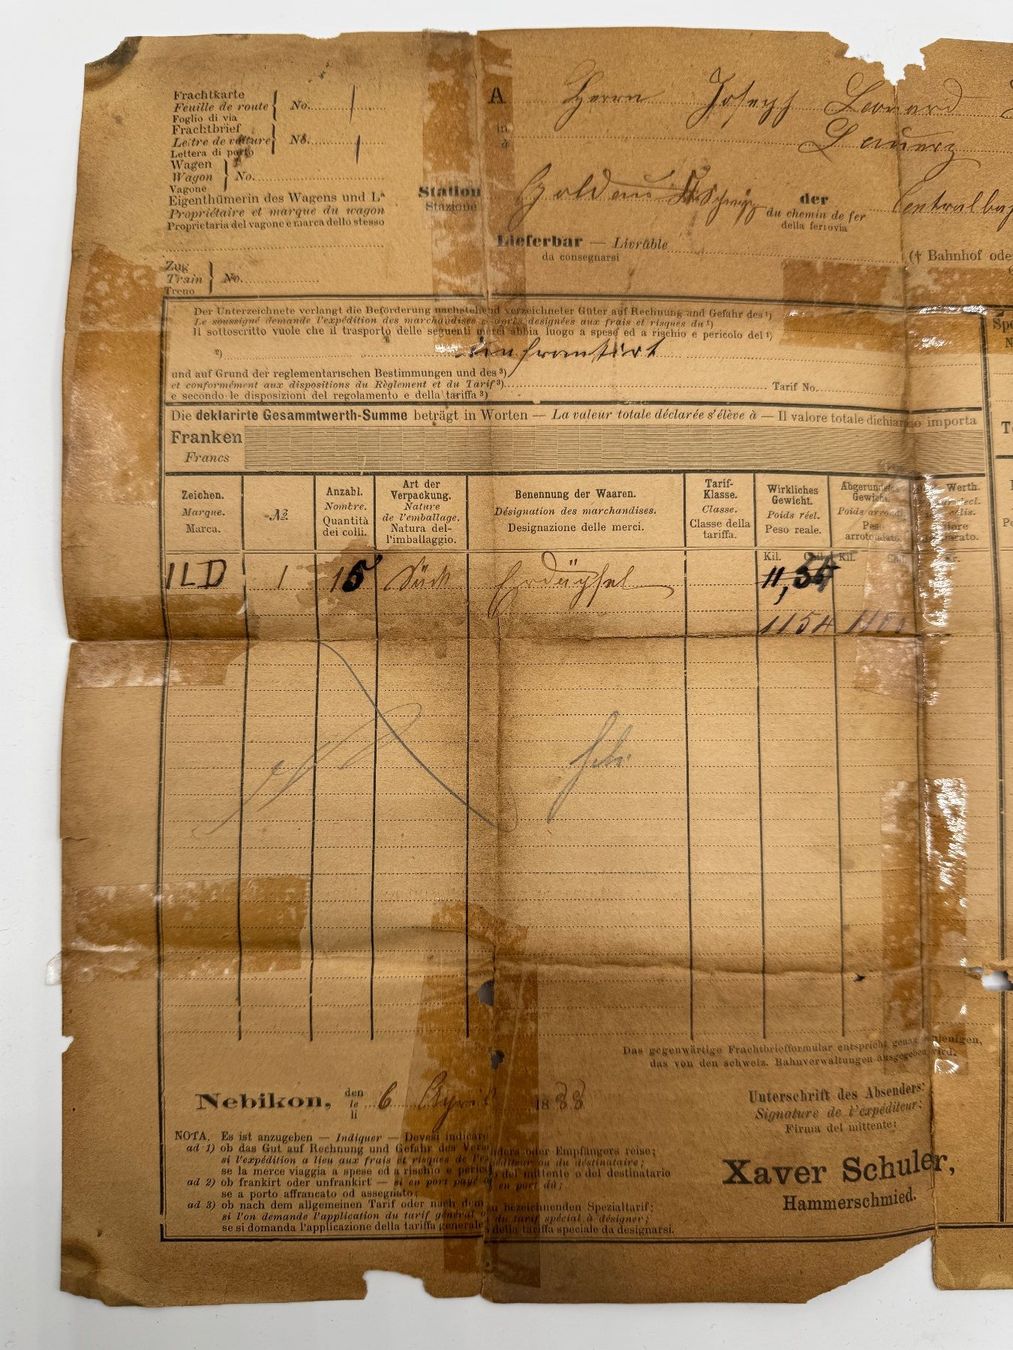 Frachtkarte
Feuille de route No.
Foglio di via
Frachtbrief
Lettre de voiture No.
Lettera di porto
Wagen
Wagon No.
Vagone
Eigenthümerin des Wagens und La
Propriétaire et marque du wagon
Proprietaria del vagone e marca dello stesso
Zug
Train No.
Treno
A Herrn Joseph Leonard
in
à Lauerz
Station Goldau Kt. Schwyz der Centralba
Stazione du chemin de fer
della ferrovia
Lieferbar — Livrable
da consegnarsi
(† Bahnhof ode
Der Unterzeichnete verlangt die Beförderung nachstehend verzeichneter Güter auf Rechnung und Gefahr des 1)
Le soussigné demande l'expédition des marchandises ci-après désignées aux frais et risques du 1)
Il sottoscritto vuole che il trasporto delle seguenti merci abbia luogo a spese ed a rischio e pericolo del 1)
2) unfrankirt
und auf Grund der reglementarischen Bestimmungen und des 3)
et conformément aux dispositions du Règlement et du Tarif 3) Tarif No.
e secondo le disposizioni del regolamento e della tariffa 3)
Die deklarirte Gesammtwerth-Summe beträgt in Worten — La valeur totale déclarée s'élève à — Il valore totale dichiarato importa
Franken
Francs
Zeichen.
Marque.
Marca.
No.
Anzahl.
Nombre.
Quantità
dei colli.
Art der
Verpackung.
Nature
de l'emballage.
Natura del-
l'imballaggio.
Benennung der Waaren.
Désignation des marchandises.
Designazione delle merci.
Tarif-
Klasse.
Classe.
Classe della
tariffa.
Wirkliches
Gewicht.
Poids réel.
Peso reale.
Abgerundetes
Gewicht.
Poids arrondi.
Peso
arrotondato.
Werth.
Kil. Kil.
JLD 1 15 Säck Erdäpfel
1154
Das gegenwärtige Frachtbriefformular entspricht genau demjenigen,
das von den schweiz. Bahnverwaltungen ausgegeben wird.
Nebikon, den 6 April 1888
le
li
Unterschrift des Absenders:
Signature de l'expéditeur:
Firma del mittente:
Xaver Schuler,
Hammerschmied.
NOTA. Es ist anzugeben — Indiquer — Dovesi indicare
ad 1) ob das Gut auf Rechnung und Gefahr des Versenders oder Empfängers reise;
si l'expédition a lieu aux frais et risques de l'expéditeur ou du destinataire;
se la merce viaggia a spese ed a rischio e pericolo del mittente o del destinatario
ad 2) ob frankirt oder unfrankirt — si en port payé ou en port dû;
se a porto affrancato od assegnato;
ad 3) ob nach dem allgemeinen Tarif oder nach dem zu bezeichnenden Spezialtarif;
si l'on demande l'application du tarif général ou du tarif spécial à désigner;
se si domanda l'applicazione della tariffa generale o della tariffa speciale da designarsi.